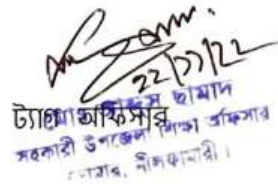 ২২/১১/২২
ট্যাগ অফিসার
ছামাদ
সহকারী উপজেলা শিক্ষা অফিসার
নীলফামারী।